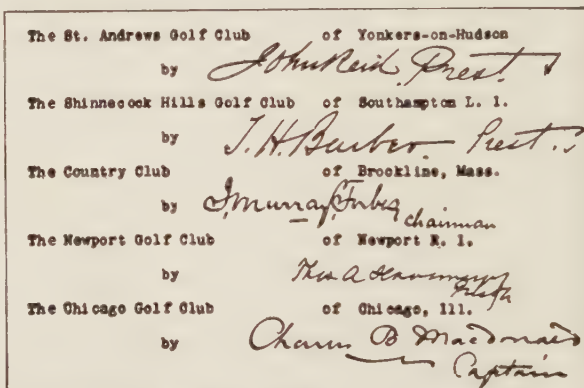 The St. Andrews Golf Club of Yonkers-on-Hudson
by John Reid Prest.
The Shinnecock Hills Golf Club of Southampton L. I.
by T. H. Barber Prest.
The Country Club of Brookline, Mass.
by J. Murray Forbes chairman
The Newport Golf Club of Newport R. I.
by Theo A Havemeyer
The Chicago Golf Club of Chicago, Ill.
by Charles B Macdonald
Captain